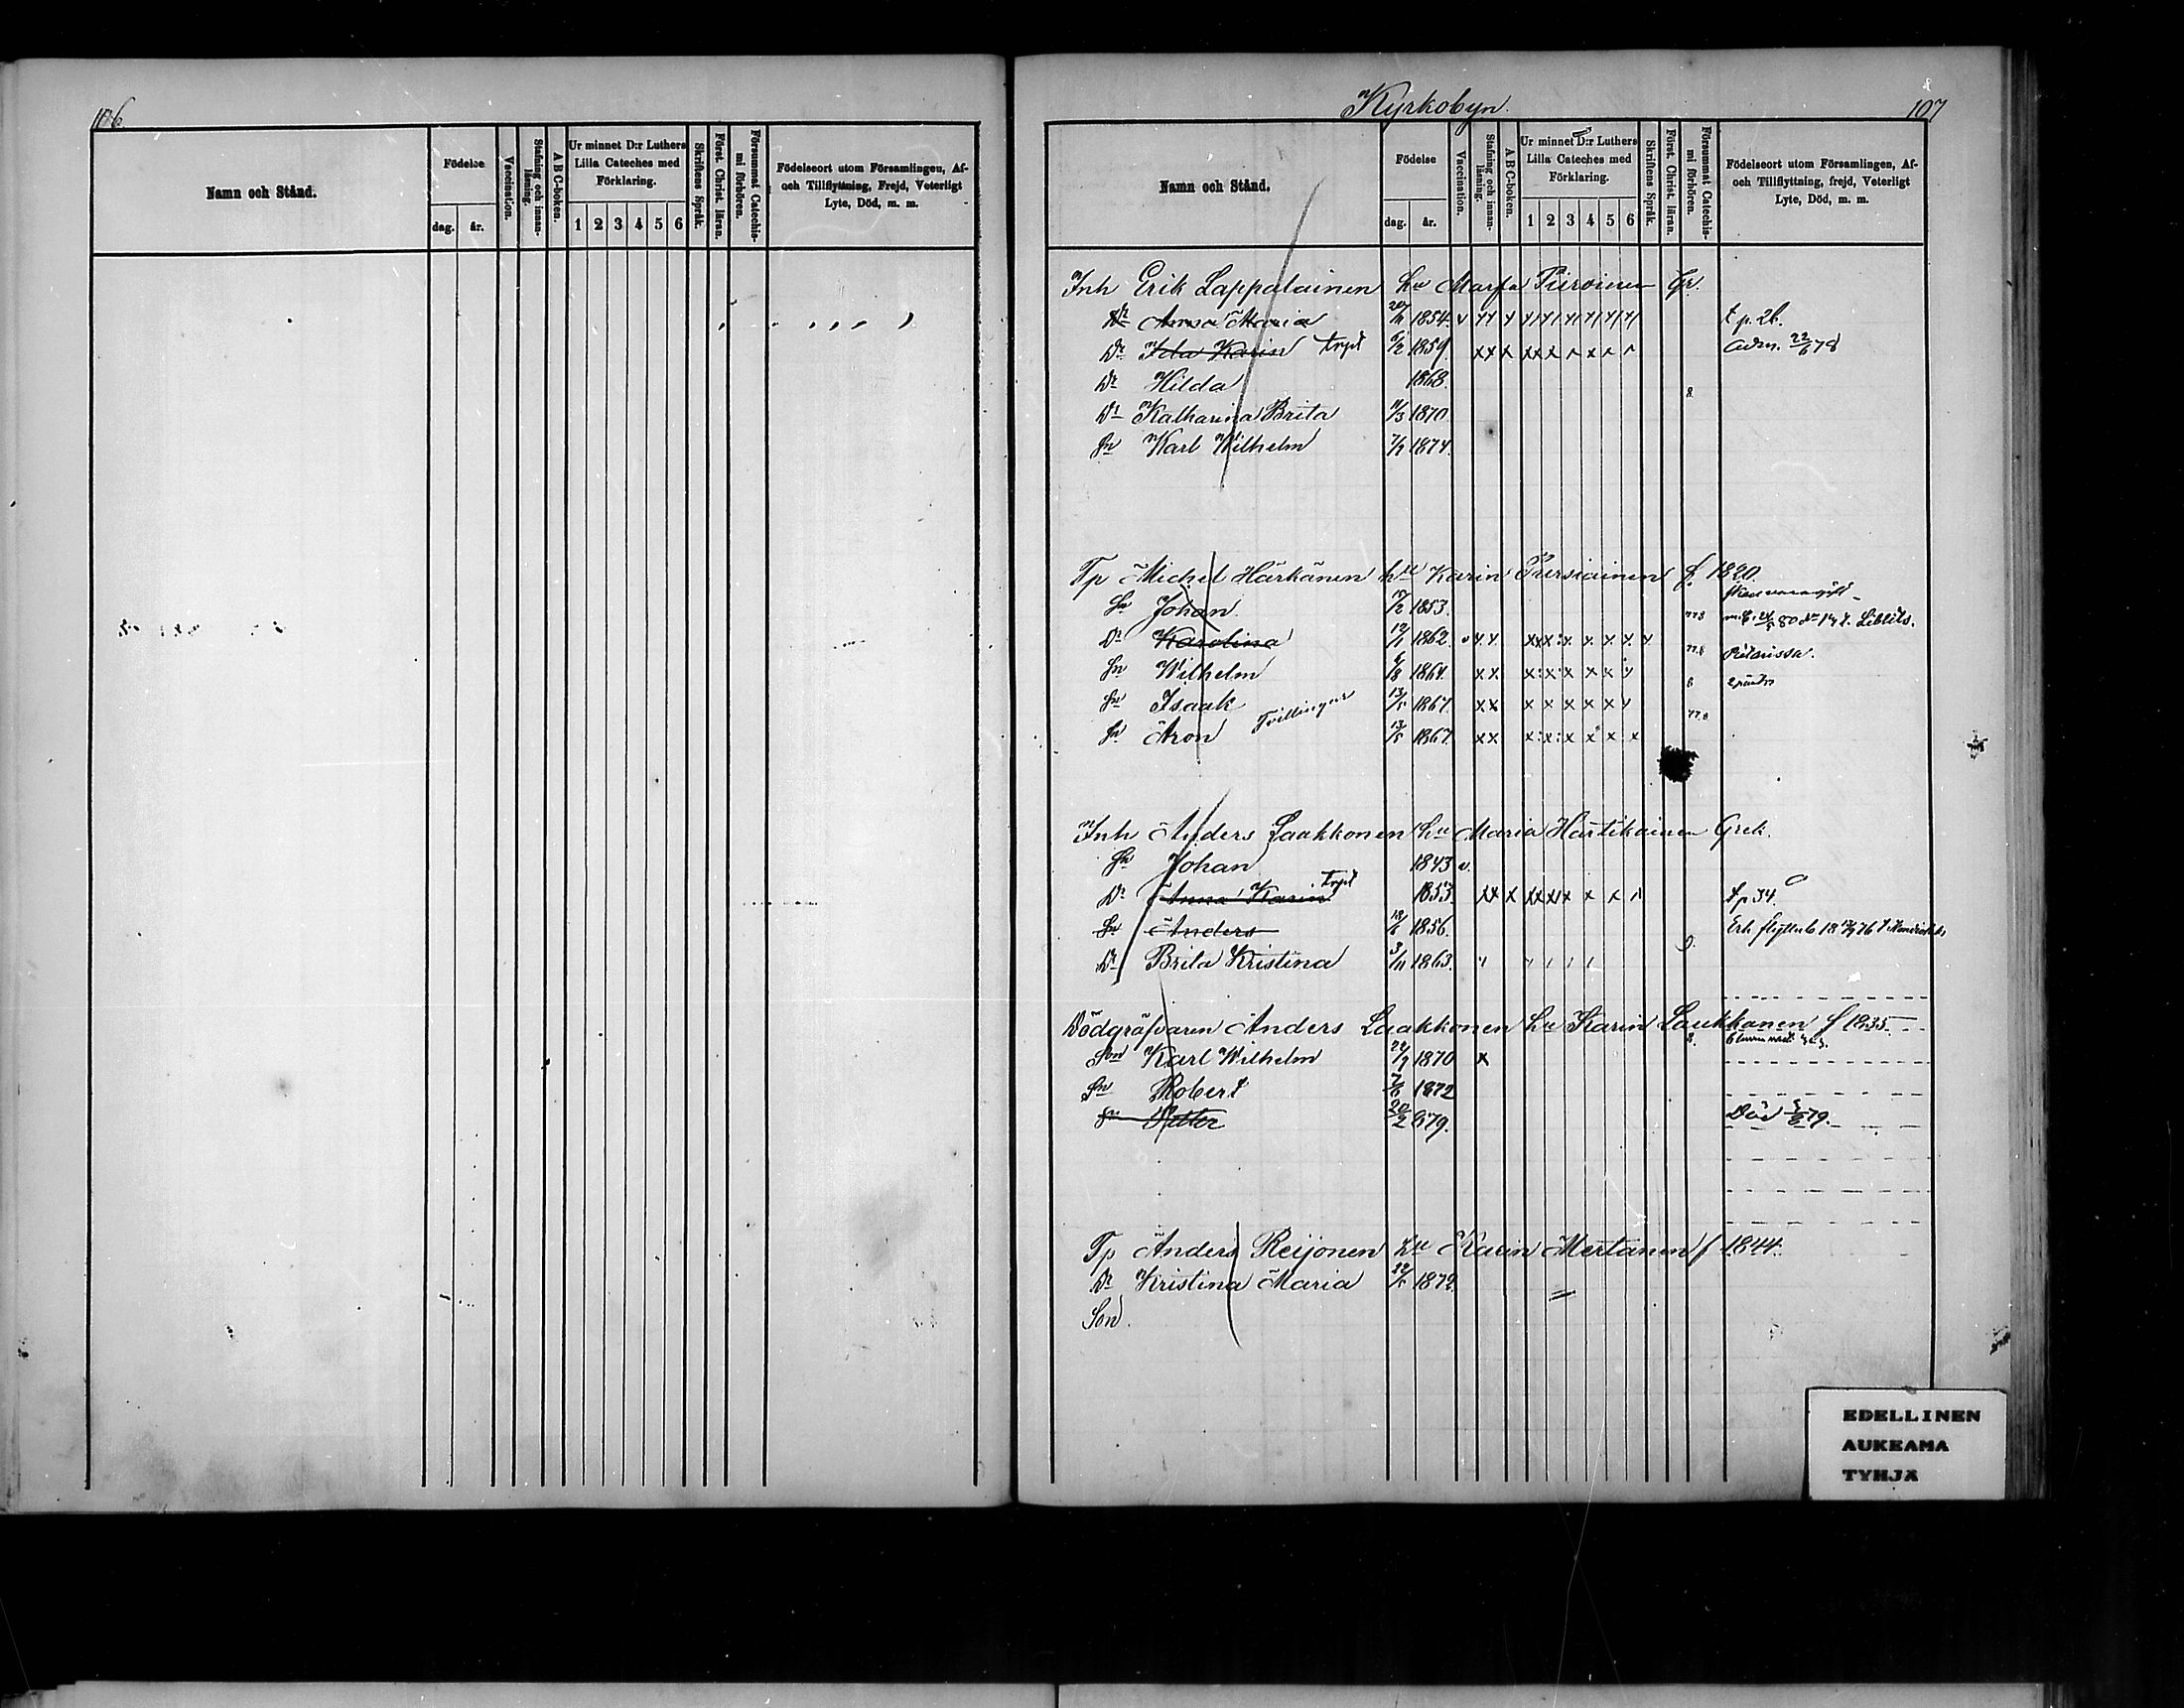 106
Namn och Stånd.
Födelse
dag.
år.
Vaccination.
Stafning och innanläsning.
A B C-boken.
Ur minnet D:r Luthers Lilla Cateches med Förklaring.
1 2 3 4 5 6
Skriftens Språk.
Först. Christ. läran.
Försummat Catechismi förhören.
Födelseort utom Församlingen, Af- och Tillflyttning, Frejd, Veterligt Lyte, Död, m. m.
Kyrkobyn.
107
Namn och Stånd.
Födelse
dag.
år.
Vaccination.
Stafning och innanläsning.
A B C-boken.
Ur minnet D:r Luthers Lilla Cateches med Förklaring.
1 2 3 4 5 6
Skriftens Språk.
Först. Christ. läran.
Försummat Catechismi förhören.
Födelseort utom Församlingen, Af- och Tillflyttning, frejd, Veterligt Lyte, Död, m. m.
Inh Erik Lappalainen hu Marfa Piiroinen Gr.
Dr Anna Maria 1854. v t p. 26.
Dr Ida Karin 6/2 1859 x x x x x x 22/6 78
Dr Hilda 1868. 8
Dr Katharina Brita 11/3 1870.
Sn Karl Wilhelm 1874.
Tp Michel Härkänen hu Karin Pursiainen f. 1820.
Sn Johan 1853.
Dr Karolina 12/1 1862. v x x x x x x x x x 80 Libelits.
Sn Wilhelm 1864. x x x x x x x
Sn Isaak Tvillingar 13/5 1867. x x x x x x x x
Sn Aron 13/5 1867. x x x x x x x x
Inh Anders Laakkonen hu Maria Hartikainen Grek.
Sn Johan 1843 v.
Dr Anna Karin 1853 x x x x x x x x t p 34.
Sn Anders 1856. flyttat
Dr Brita Kristina 3/11 1863.
Dödgräfvaren Anders Laakkonen hu Karin Laukkanen f 1835.
Son Karl Wilhelm 1870 x
Sn Robert 1872
Sn 20/2 879. Död 79.
Tp Anders Reijonen hu Karin Mertanen f 1844.
Dr Kristina Maria 1872.
Son.
EDELLINEN
AUKEAMA
TYHJÄ